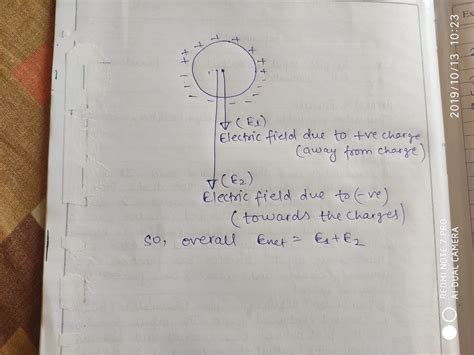 (E1)
Electric field due to +ve charge
(away from charge)
(E2)
Electric field due to (-ve)
(towards the charges)
So, overall Enet = E1+E2
2019/10/13 10:23
REDMI NOTE 7 PRO
AI DUAL CAMERA